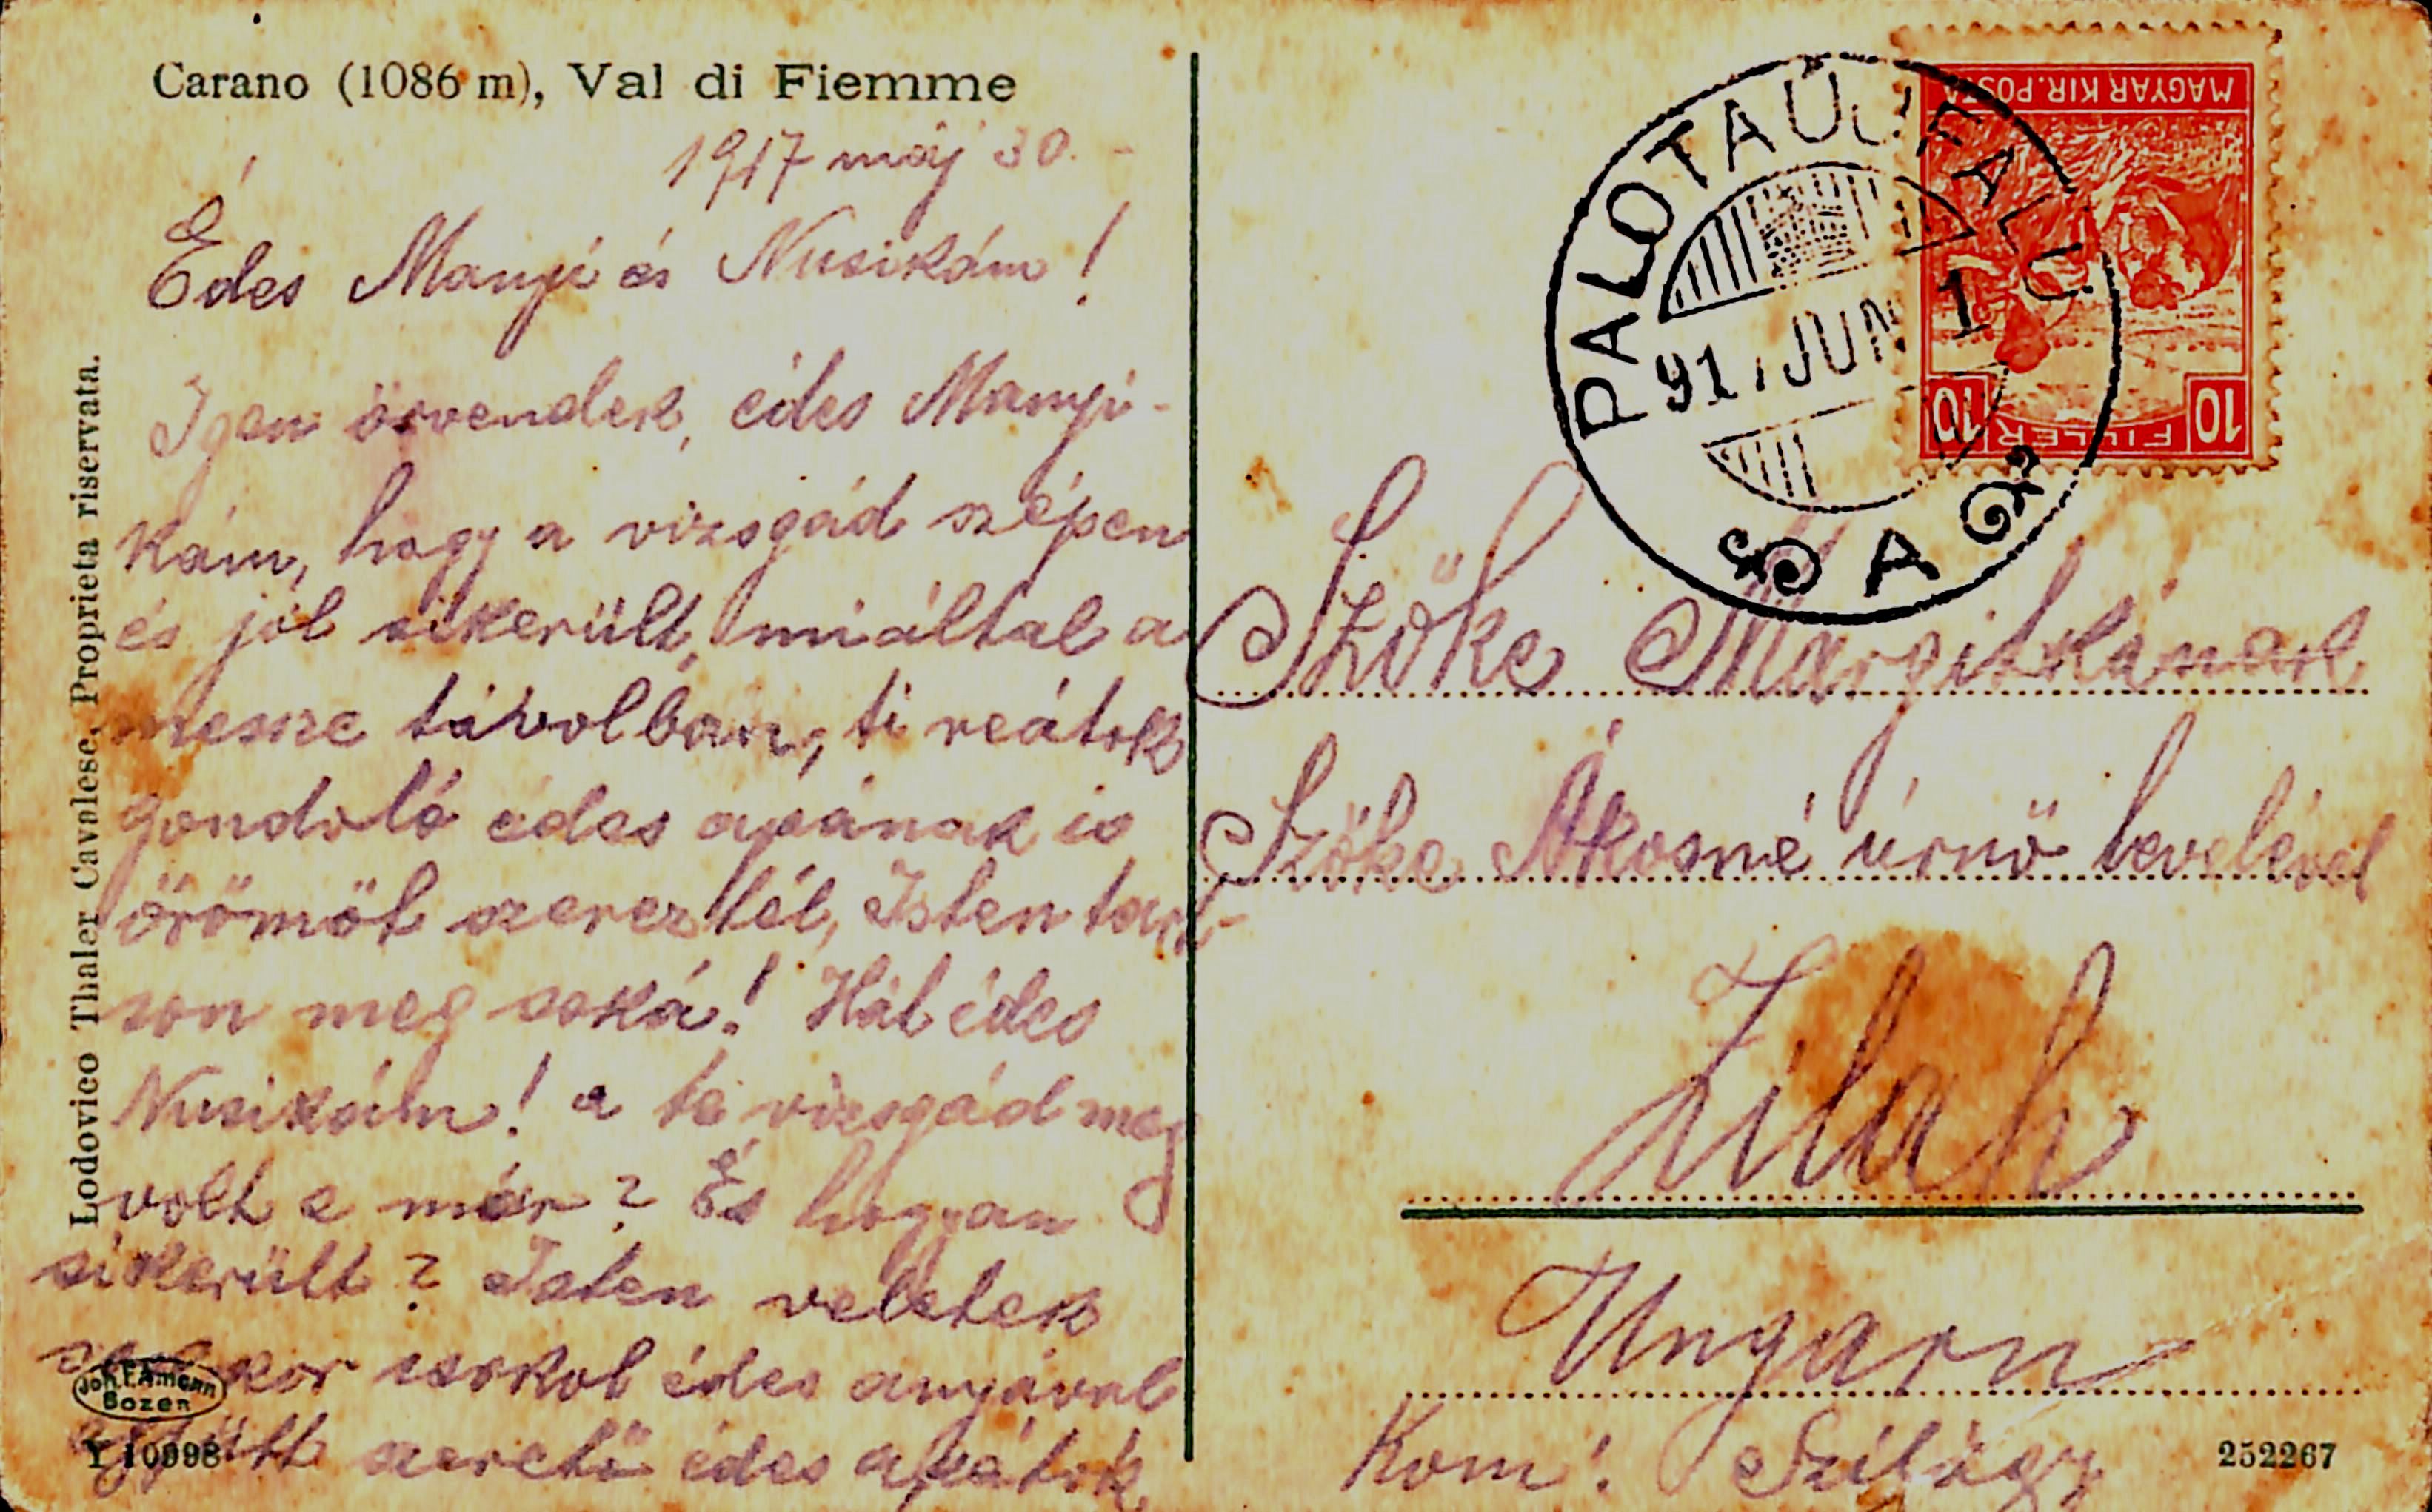 Carano (1086 m), Val di Fiemme
1917 máj 30.-
Édes Manyi és Nusikám!
Igen örvendek, édes Manyi-
kám, hogy a vizsgád szépen
és jól sikerült, miáltal a
messze távolban, ti reátok
gondoló édes apának is
örömöt szereztél, Isten tart-
son meg soká! Hát édes
Nusikám! a te vizsgád meg
volt e már? És hogyan
sikerült? Isten veletek
sokszor csókol édes anyával
együtt szerető édes apátok
Lodovico Thaler Cavalese, Proprieta riservata.
Joh. F. Amonn
Bozen
Y 10998
MAGYAR KIR. POSTA
10 FILLER 10
PALOTAÚJFALU
917 JUN 1
A
Szőke Margitkának
Szőke Ákosné úrnő bevelével
Zilah
Ungarn
Kom: Szilágy
252267